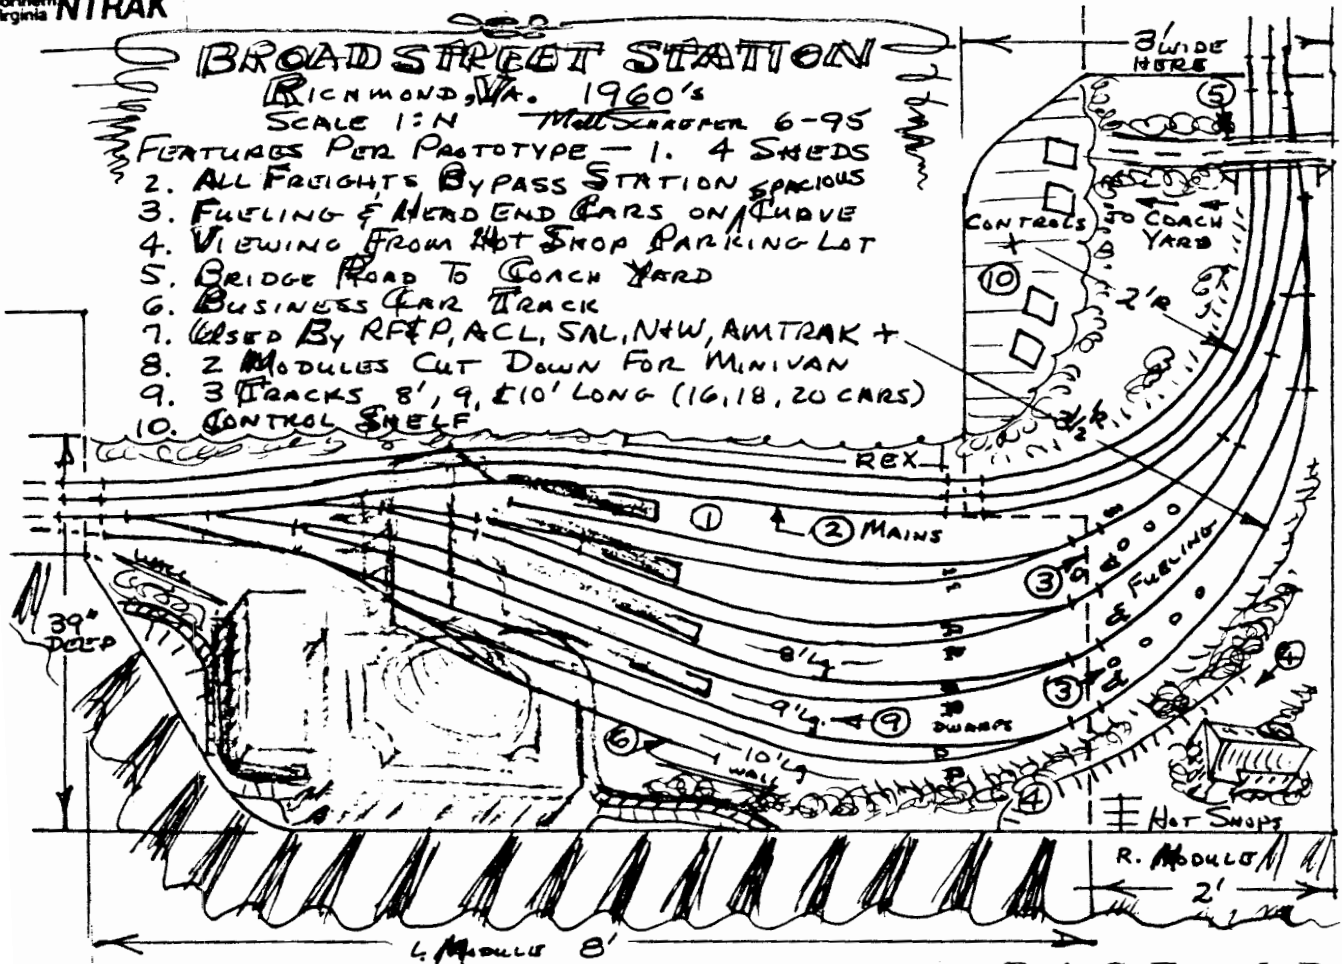 Northern
Virginia NTRAK
BROAD STREET STATION
RICHMOND, VA. 1960's
SCALE 1:N Matt Schaefer 6-95
FEATURES PER PROTOTYPE — 1. 4 SHEDS
2. ALL FREIGHTS BYPASS STATION
3. FUELING & HEAD END CARS ON SPACIOUS CURVE
4. VIEWING FROM HOT SHOP PARKING LOT
5. BRIDGE ROAD TO COACH YARD
6. BUSINESS CAR TRACK
7. USED BY RF&P, ACL, SAL, N+W, AMTRAK +
8. 2 MODULES CUT DOWN FOR MINIVAN
9. 3 TRACKS 8', 9, &10' LONG (16, 18, 20 CARS)
10. CONTROL SHELF
3' WIDE
HERE
5
CONTROLS
TO COACH
YARD
10
2'R
2½'R
REX
1
2 MAINS
3
& FUELING
WALL
39"
DEEP
8' Lg
3
4
9' Lg.
9
DWARFS
6
10' Lg
WALL
4
HOT SHOPS
R. MODULE
2'
L. MODULE 8'